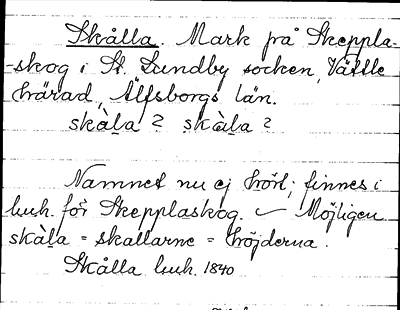 Skålla. Mark på Skeppla-
-skog i St. Lundby socken, Vättle
härad, Älfsborgs län.
skàla ? skàla ?
Namnet nu ej hört; finnes i
luh. för Skepplaskog. – Möjligen
skàla = skallarne = höjderna.
Skålla luh. 1840